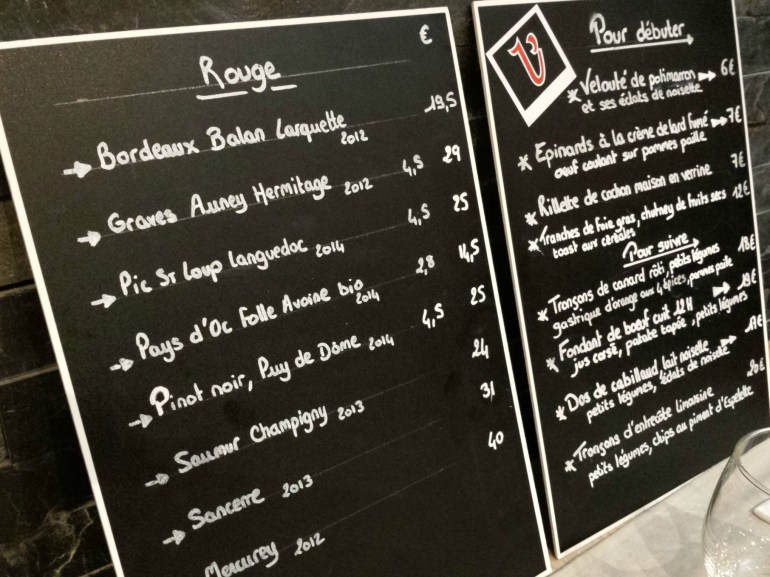 €
Rouge
Bordeaux Balan Larquette 2012 19,5
Graves Auney Hermitage 2012 4,5 29
Pic St Loup Languedoc 2014 4,5 25
Pays d'Oc Folle Avoine bio 2014 2,8 14,5
Pinot noir, Puy de Dôme 2014 4,5 25
Saumur Champigny 2013 24
Sancerre 2013 31
Mercurey 2012 40
Pour débuter
Velouté de potimarron 6€
et ses éclats de noisette
Epinards à la crème de lard fumé 7€
oeuf coulant sur pommes paille
Rillette de cochon maison en verrine 7€
Tranches de foie gras, chutney de fruits secs 12€
toast aux céréales
Pour suivre
Tronçons de canard rôti, petits légumes 18€
gastrique d'orange aux 4 épices, pommes paille
Fondant de boeuf cuit 12H 19€
jus corsé, patate tapée, petits légumes
Dos de cabillaud lait noisette
petits légumes, éclats de noisette
Tronçons d'entrecôte limousine 20€
petits légumes, chips au piment d'Espelette